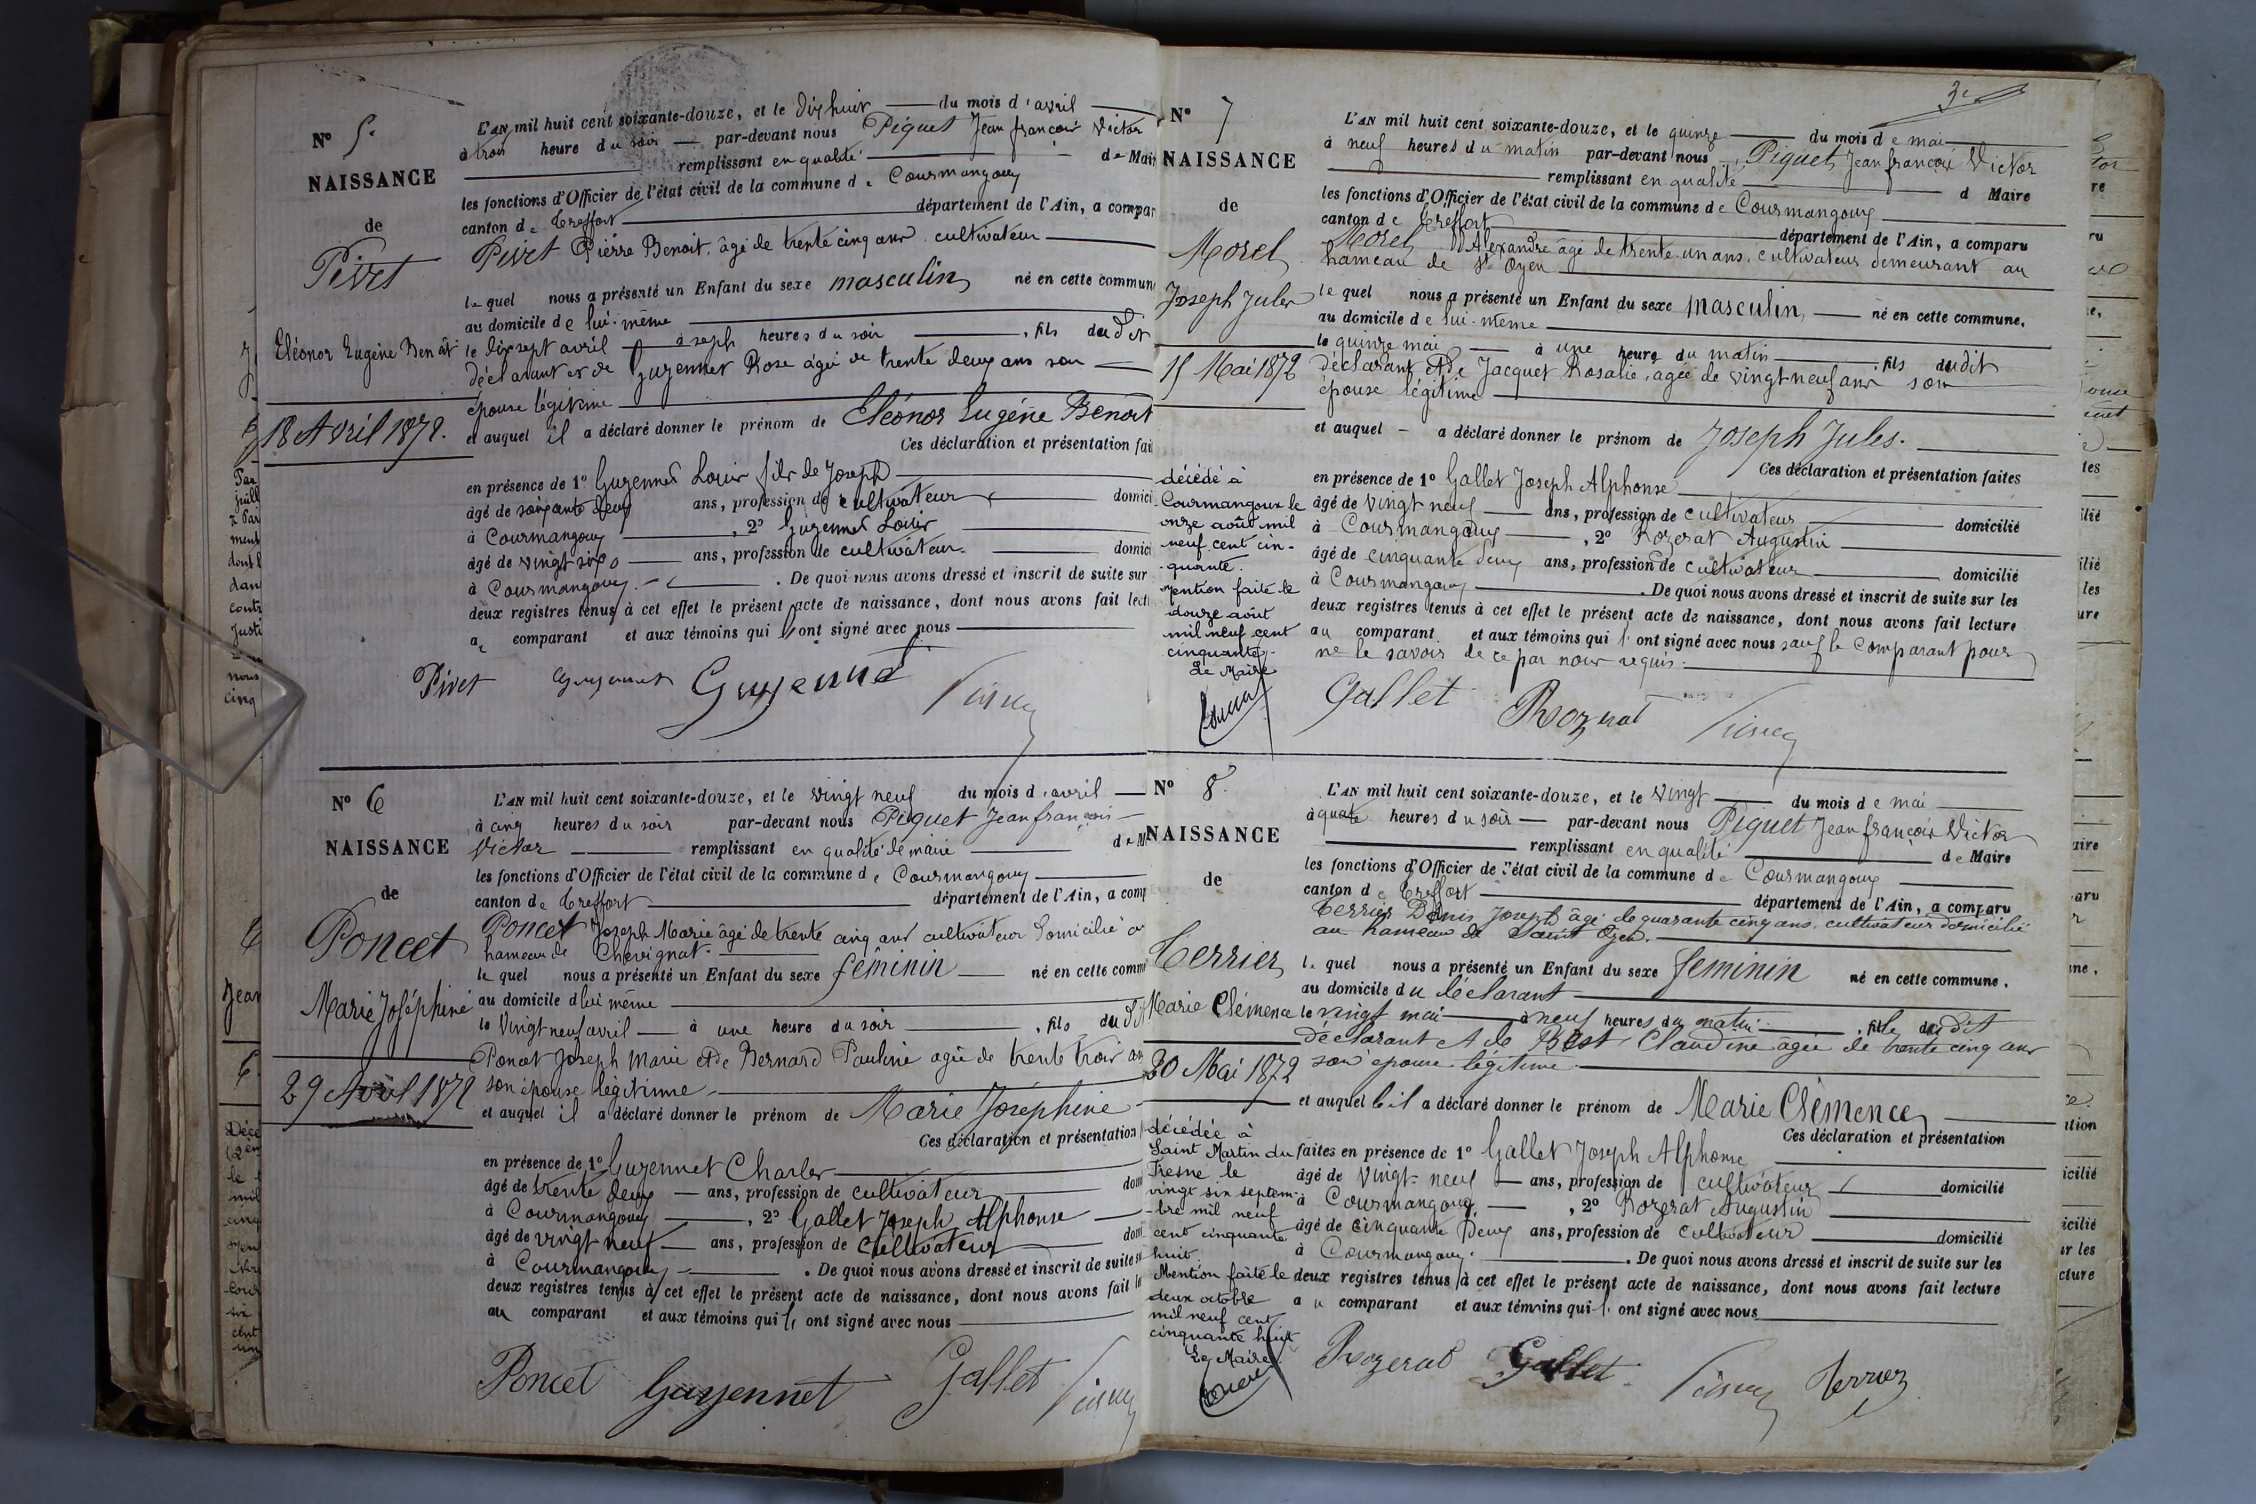 N° 5.
NAISSANCE
de
Pivet
Eléonor Eugène Benoit
18 Avril 1872.
L'AN mil huit cent soixante-douze, et le dix huit du mois d'avril
à trois heure du soir par-devant nous Piquet Jean françois Victor
remplissant en qualité de Mair
les fonctions d'Officier de l'état civil de la commune de Courmangoux
canton de Treffort département de l'Ain, a compar
Pivet Pierre Benoit, âgé de trente cinq ans cultivateur
le quel nous a présenté un Enfant du sexe masculin né en cette commun
au domicile de lui-même
le dix sept avril à sept heures du soir, fils du dit
déclarant et de Guyennet Rose âgée de trente deux ans son
épouse légitime
et auquel il a déclaré donner le prénom de Eléonor Eugène Benoit
Ces déclaration et présentation fai
en présence de 1° Guyennet Louis fils de Joseph
âgé de soixante deux ans, profession de cultivateur domici
à Courmangoux, 2° Guyennet Louis
âgé de vingt six ans, profession de cultivateur. domici
à Courmangoux. De quoi nous avons dressé et inscrit de suite sur
deux registres tenus à cet effet le présent acte de naissance, dont nous avons fait lect
au comparant et aux témoins qui l'ont signé avec nous
Pivet Guyennet Guyennet
N° 6
NAISSANCE
de
Poncet
Marie Joséphine
29 Avril 1872
L'AN mil huit cent soixante-douze, et le vingt neuf du mois d'avril
à cinq heures du soir par-devant nous Piquet Jean françois
Victor remplissant en qualité de maire de M
les fonctions d'Officier de l'état civil de la commune de Courmangoux
canton de Treffort département de l'Ain, a comp
Poncet Joseph Marie âgé de trente cinq ans cultivateur domicilié a
hameau de Chevignat
le quel nous a présenté un Enfant du sexe féminin né en cette comm
au domicile d lui même
le vingt neuf avril à une heure du soir, fils du dit
Poncet Joseph Marie et de Bernard Pauline agée de trente trois an
son épouse légitime
et auquel il a déclaré donner le prénom de Marie Joséphine
Ces déclaration et présentation
en présence de 1° Guyennet Charles
âgé de trente deux ans, profession de cultivateur dom
à Courmangoux, 2° Gallet Joseph Alphonse
âgé de vingt neuf ans, profession de cultivateur dom
à Courmangoux. De quoi nous avons dressé et inscrit de suite s
deux registres tenus à cet effet le présent acte de naissance, dont nous avons fait l
au comparant et aux témoins qui l'ont signé avec nous
Poncet Guyennet Gallet
3e
N° 7
NAISSANCE
de
Morel
Joseph Jules
15 Mai 1872
décédé à
Courmangoux le
onze août mil
neuf cent cin-
-quante.
Mention faite le
douze août
mil neuf cent
cinquante.
Le Maire
L'AN mil huit cent soixante-douze, et le quinze du mois de mai
à neuf heures du matin par-devant nous Piquet Jean françois Victor
remplissant en qualité d Maire
les fonctions d'Officier de l'état civil de la commune de Courmangoux
canton de Treffort département de l'Ain, a comparu
Morel Alexandre âgé de trente-un ans, cultivateur demeurant au
hameau de St Oyen
le quel nous a présenté un Enfant du sexe masculin, né en cette commune,
au domicile de lui-même
le quinze mai à une heure du matin fils du dit
déclarant et de Jacquet Rosalie, agée de vingt neuf ans son
épouse légitime
et auquel a déclaré donner le prénom de Joseph Jules.
Ces déclaration et présentation faites
en présence de 1° Gallet Joseph Alphonse
âgé de vingt neuf ans, profession de cultivateur domicilié
à Courmangoux, 2° Rozerat Augustin
âgé de cinquante deux ans, profession de cultivateur domicilié
à Courmangoux. De quoi nous avons dressé et inscrit de suite sur les
deux registres tenus à cet effet le présent acte de naissance, dont nous avons fait lecture
au comparant et aux témoins qui l'ont signé avec nous sauf le comparant pour
ne le savoir de ce par nous requis.
Gallet Rozerat
N° 8.
NAISSANCE
de
Terrier
Marie Clémence
20 Mai 1872
décédée à
Saint Martin du
Fresne le
vingt six septem-
-bre mil neuf
cent cinquante
huit
Mention faite le
deux octobre
mil neuf cent
cinquante huit
Le Maire
L'AN mil huit cent soixante-douze, et le vingt du mois de mai
à quatre heures du soir par-devant nous Piquet Jean françois Victor
remplissant en qualité de Maire
les fonctions d'Officier de l'état civil de la commune de Courmangoux
canton de Treffort département de l'Ain, a comparu
Terrier Denis Joseph âgé de quarante cinq ans, cultivateur domicilié
au hameau de Saint Oyen.
le quel nous a présenté un Enfant du sexe feminin né en cette commune,
au domicile du déclarant
le vingt mai à neuf heures du matin, fille du dit
déclarant et de Best Claudine âgée de trente cinq ans
son épouse légitime
et auquel le il a déclaré donner le prénom de Marie Clémence
Ces déclaration et présentation
faites en présence de 1° Gallet Joseph Alphonse
âgé de vingt-neuf ans, profession de cultivateur domicilié
à Courmangoux, 2° Rozerat Augustin
âgé de cinquante deux ans, profession de cultivateur domicilié
à Courmangoux. De quoi nous avons dressé et inscrit de suite sur les
deux registres tenus à cet effet le présent acte de naissance, dont nous avons fait lecture
au comparant et aux témoins qui l'ont signé avec nous
Rozerat Gallet Terrier